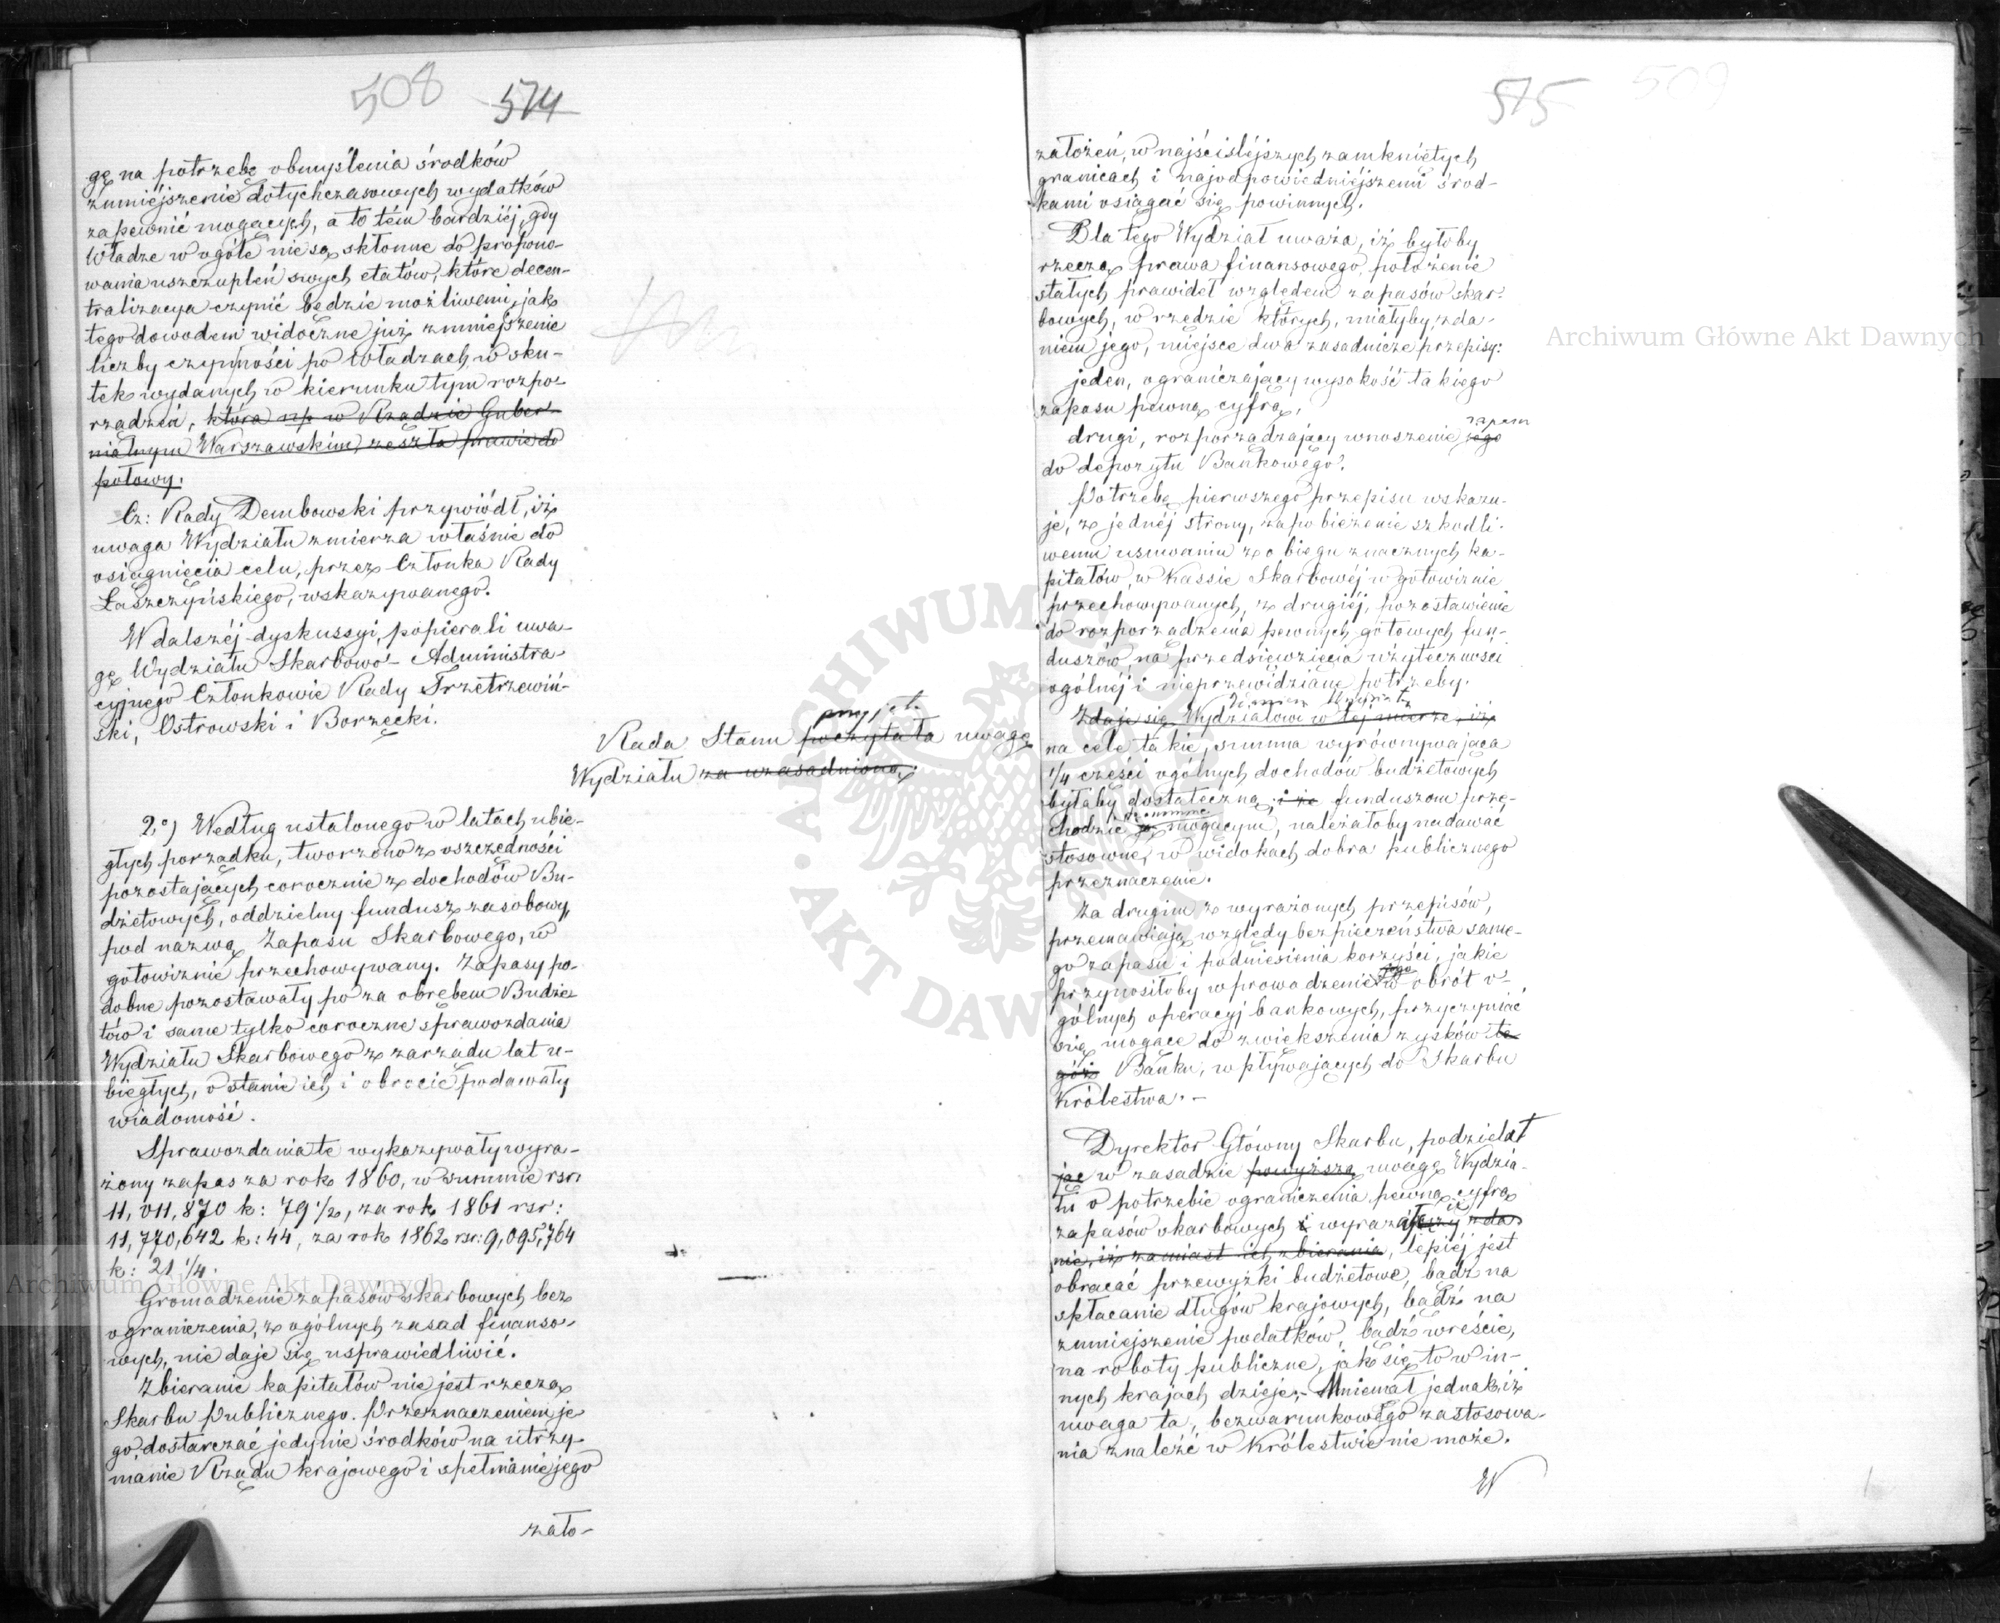 508 574
gę na potrzebę obmyślenia środków
zmniejszenie dotychczasowych wydatków
zapewnić mogących, a to tém bardziéj, gdy
Władze w ogóle nie są skłonne do propono-
wania uszczupleń swych etatów, które decen-
tralizacya czynić będzie możliwemi, jak
tego dowodem widoczne już zmniejszenie
liczby czynności po Władzach, w sku-
tek wydanych w kierunku tym rozpo-
rządzeń, która np w Rządzie Guber-
nialnym Warszawskim, zeszła prawie do
połowy.
Cz: Rady Dembowski przywiódł, iż
uwaga Wydziału zmierza właśnie do
osiągnięcia celu, przez Członka Rady
Łaszczyńskiego, wskazywanego.
W dalszéj dyskussyi, popierali uwa-
gę Wydziału Skarbowo-Administra-
cyjnego Członkowie Rady Trzetrzewiń-
ski, Ostrowski i Borzęcki.
przyjęła
Rada Stanu poczytała uwagę
Wydziału za uzasadnioną.
2o) Według ustalonego w latach ubie-
głych porządku, tworzono z oszczędności
pozostających corocznie z dochodów Bu-
dżetowych, oddzielny fundusz zasobowy,
pod nazwą Zapasu Skarbowego, w
gotowiźnie przechowywany. Zapasy po-
dobne pozostawały po za obrębem Budże-
tów i same tylko coroczne sprawozdania
Wydziału Skarbowego z zarządu lat u-
biegłych, o stanie ich i obrocie podawały
wiadomość.
Sprawozdania te wykazywały wyra-
żony zapas za rok 1860, w summie rsr:
11,011,870 k: 79 1/2, za rok 1861 rsr:
11,770,642 k: 44, za rok 1862 rsr: 9,095,764
k: 21 1/4.
Gromadzenie zapasów skarbowych bez
ograniczenia, z ogólnych zasad finanso-
wych, nie daje się usprawiedliwić.
Zbieranie kapitałów nie jest rzeczą
Skarbu Publicznego. Przeznaczeniem je-
go, dostarczać jedynie środków na utrzy-
manie Rządu krajowego i spełnianie jego
zało-
575 509
założeń, w najściślejszych zamkniętych
granicach i najodpowiedniejszemi środ-
kami osiągać się powinnych.
Dla tego Wydział uważa, iż byłoby
rzeczą prawa finansowego, położenie
stałych prawideł względem zapasów skar-
bowych, w rzędzie których, miałyby, zda-
niem jego, miejsce dwa zasadnicze przepisy:
jeden, ograniczający wysokość takiego
zapasu pewną cyfrą,
zapasu
drugi, rozporządzający wnoszenie jego
do depozytu Bankowego.
Potrzebę pierwszego przepisu wskazu-
je, z jednéj strony, zapobieżenie szkodli-
wemu usuwaniu z obiegu znacznych ka-
pitałów, w Kassie Skarbowéj w gotowiźnie
przechowywanych, z drugiéj, pozostawienie
do rozporządzenia pewnych gotowych fun-
duszów, na przedsięwzięcia użyteczności
ogólnéj i nieprzewidziane potrzeby.
Zdaniem Wydziału
Zdaje się Wydziałowi w téj mierze, iż
na cele takie, summa wyrównywająca
1/4 części ogólnych dochodów budżetowych
byłaby dostateczną, i że funduszom prze-
summę
chodzić ją mogącym, należałoby nadawać
stosowne, w widokach dobra publicznego
przeznaczenie.
Za drugim z wyrażonych przepisów,
przemawiają względy bezpieczeństwa same-
go zapasu i podniesienia korzyści, jakie
jego
przynosiłoby wprowadzenie w obrót o-
gólnych operacyj bankowych, przyczyniać
się mogące do zwiększenia zysków te-
goż Banku, wpływających do Skarbu
Królestwa. –
Dyrektor Główny Skarbu, podzielał
jąc w zasadzie powyższą uwagę Wydzia-
łu o potrzebie ograniczenia pewną cyfrą
zapasów skarbowych i wyraził zda-
nie, iż zamiast ich zbierania, lepiéj jest
obracać przewyżki budżetowe, bądź na
spłacanie długów krajowych, bądź na
zmniejszenie podatków, bądź wreście,
na roboty publiczne, jak się to w in-
nych krajach dzieje. – Mniemał jednak, iż
uwaga ta, bezwarunkowego zastosowa-
nia znaleźć w Królestwie nie może.
W
Archiwum Główne Akt Dawnych
Archiwum Główne Akt Dawnych
ARCHIWUM GŁÓWNE AKT DAWNYCH